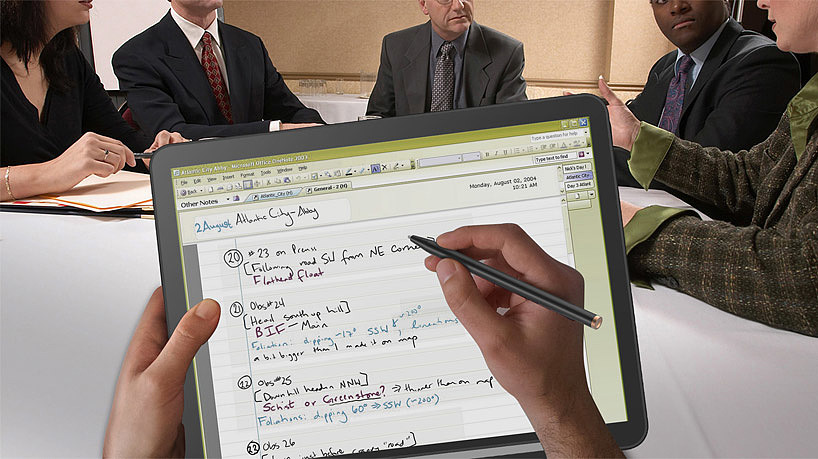 Atlantic City Abby - Microsoft Office OneNote 2003
Type a question for help
File Edit View Insert Format Tools Table Window Help
Back
Type text to find
Other Notes
Atlantic_City (H)
General - 2 (H)
Nick's Day 1
Atlantic City
Day 3 Atlant
2 August Atlantic City - Abby
Monday, August 02, 2004
10:21 AM
20 #23 on
[Following road SW from NE Corner
Flathead float
Obs #24
[Head south up hill]
BIF - Main
Foliation: dipping ~17° SSW
a bit bigger than I made it on map
Obs #25
[Downhill head in NNW]
Schist or Greenstone? ⇒ thinner than on map
Foliations: dipping 60° ⇒ SSW (~200°)
Obs 26
just before "road"